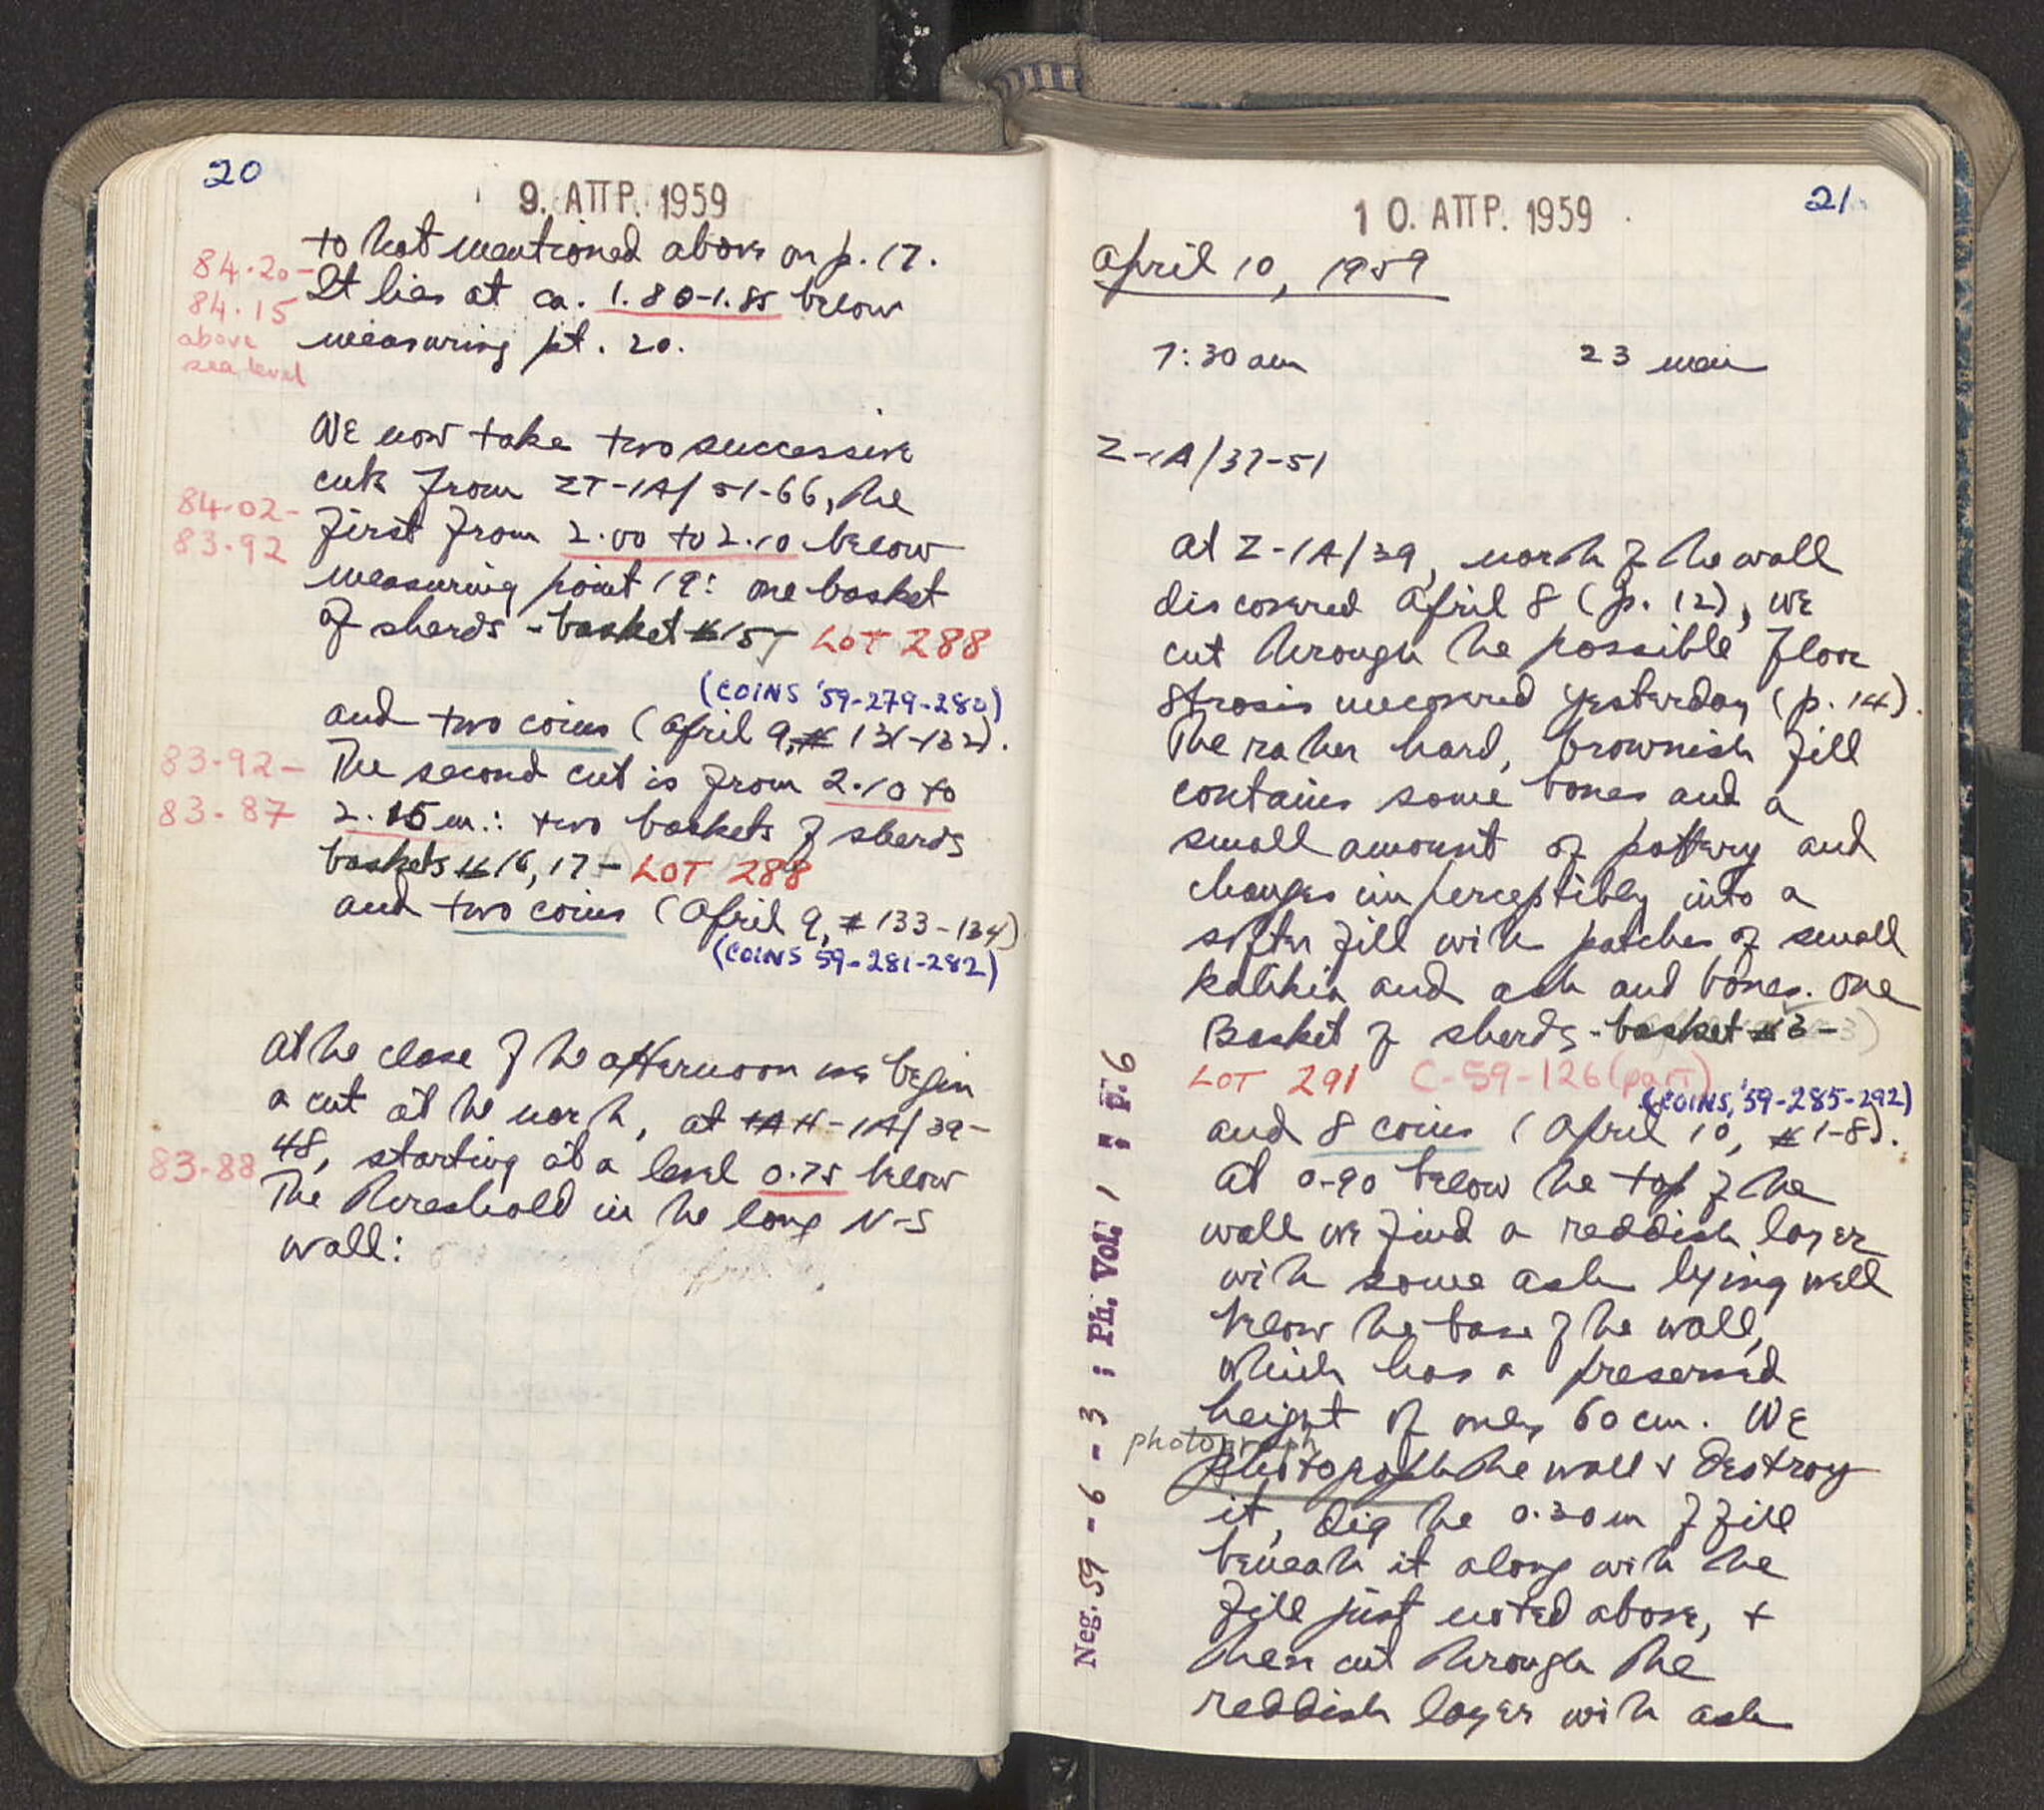 20
9. ΑΠΡ. 1959
to that mentioned above on p. 17.
84.20–
It lies at ca. 1.80-1.85 below
84.15
above
sea level
measuring pt. 20.
We now take two successive
cuts from ZT-1A/51-66, the
84.02–
83.92
first from 2.00 to 2.10 below
measuring point 19: one basket
of sherds - basket #15 - LOT 288
(COINS '59-279-280)
and two coins (April 9, # 131-132).
83.92–
The second cut is from 2.10 to
83.87
2.15 m.: two baskets of sherds
baskets # 16, 17 - LOT 288
and two coins (April 9, # 133-134)
(COINS 59-281-282)
At the close of the afternoon we begin
a cut at the north, at H-1A/39-
83.88
48, starting at a level 0.75 below
the threshold in the long N-S
wall:
10. ΑΠΡ. 1959
21
April 10, 1959
7:30 am 23 men
Z-1A/37-51
At Z-1A/39, north of the wall
discovered April 8 (p. 12), we
cut through the possible floor
strosis uncovered yesterday (p. 14).
The rather hard, brownish fill
contains some bones and a
small amount of pottery and
changes imperceptibly into a
softer fill with patches of small
kalikia and ash and bones. One
Basket of sherds - basket #3 -
LOT 291 C-59-126 (part)
(COINS, '59-285-292)
and 8 coins (April 10, #1-8).
At 0.90 below the top of the
wall we find a reddish layer
with some ash lying well
below the base of the wall,
which has a preserved
height of only 60 cm. We
photograph
photograph the wall & destroy
it, dig the 0.30 m of fill
beneath it along with the
fill just noted above, +
then cut through the
reddish layer with ash
Neg. 59 - 6 - 3 ; Ph. Vol. 1 ; p. 6